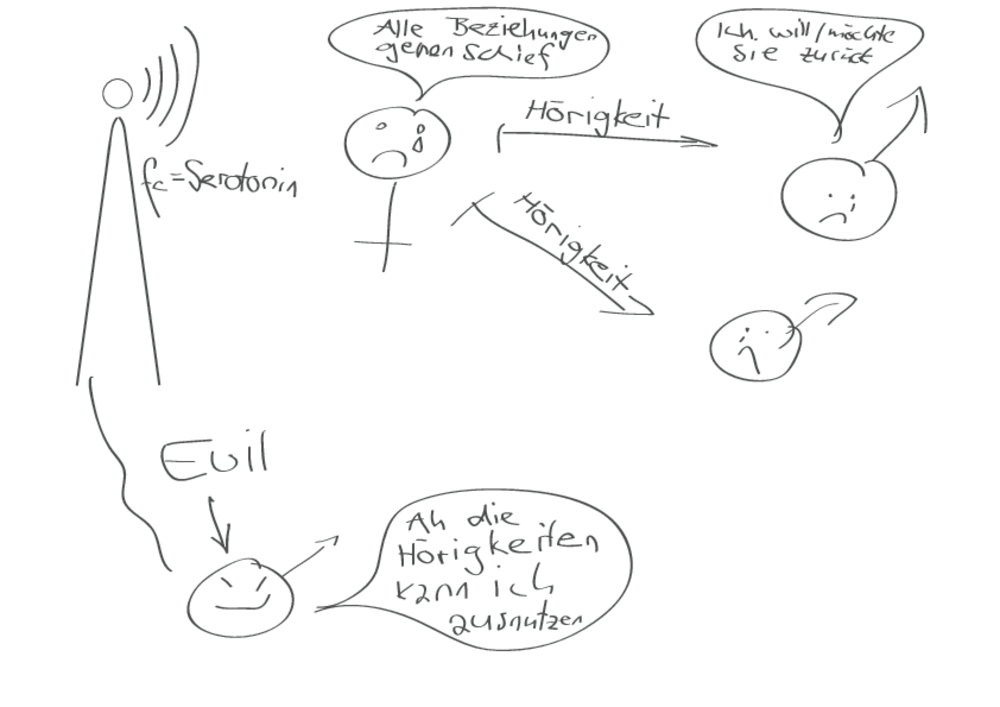 Alle Beziehungen
gehen schief
Ich will/möchte
Sie zurück
Hörigkeit
fc=Serotonin
Hörigkeit
Evil
Ah die
Hörigkeiten
kann ich
ausnutzen